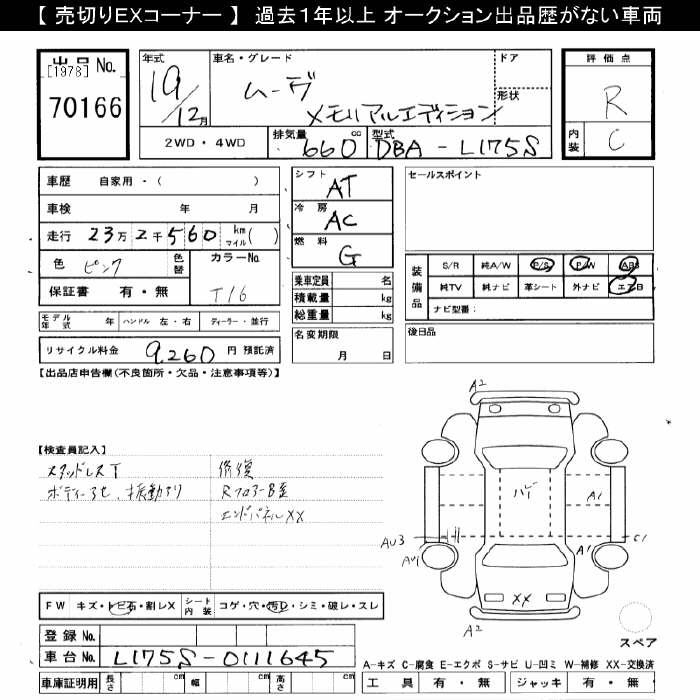 【 売切りEXコーナー 】 過去１年以上 オークション出品歴がない車両
出品 No.
[1978]
70166
年式
19/12月
車名・グレード
ムーヴ
メモリアルエディション
ドア
形状
2WD・4WD
排気量 660 cc
型式 DBA-L175S
評価点
R
内装 C
車歴 自家用・( )
車検 年 月
走行 23万2千560 km マイル( )
色 ピンク 色替
カラーNo T16
保証書 有・無
モデル年式 年 ハンドル 左・右 ディーラー・並行
リサイクル料金 9,260 円 預託済
シフト AT
冷房 AC
燃料 G
乗車定員 名
積載量 kg
総重量 kg
名変期限
月 日
セールスポイント
装備品
S/R 純A/W P/S P/W ABS
純TV 純ナビ 革シート 外ナビ エアB
ナビ型番:
後日品
【出品店申告欄(不良箇所・欠品・注意事項等)】
【検査員記入】
スタッドレスT
修復
Rフロアー
エンドパネルXX
A2
A1
AU3
C1
AU1
A1
XX
A2
スペア
FW キズ・トビ石・割レX
シート内装 コゲ・穴・汚D・シミ・破レ・スレ
登録 No.
車台 No. L175S-0111645
車庫証明用 長さ cm 幅 cm 高さ cm
A-キズ C-腐食 E-エクボ S-サビ U-凹ミ W-補修 XX-交換済
工具 有・無 ジャッキ 有・無